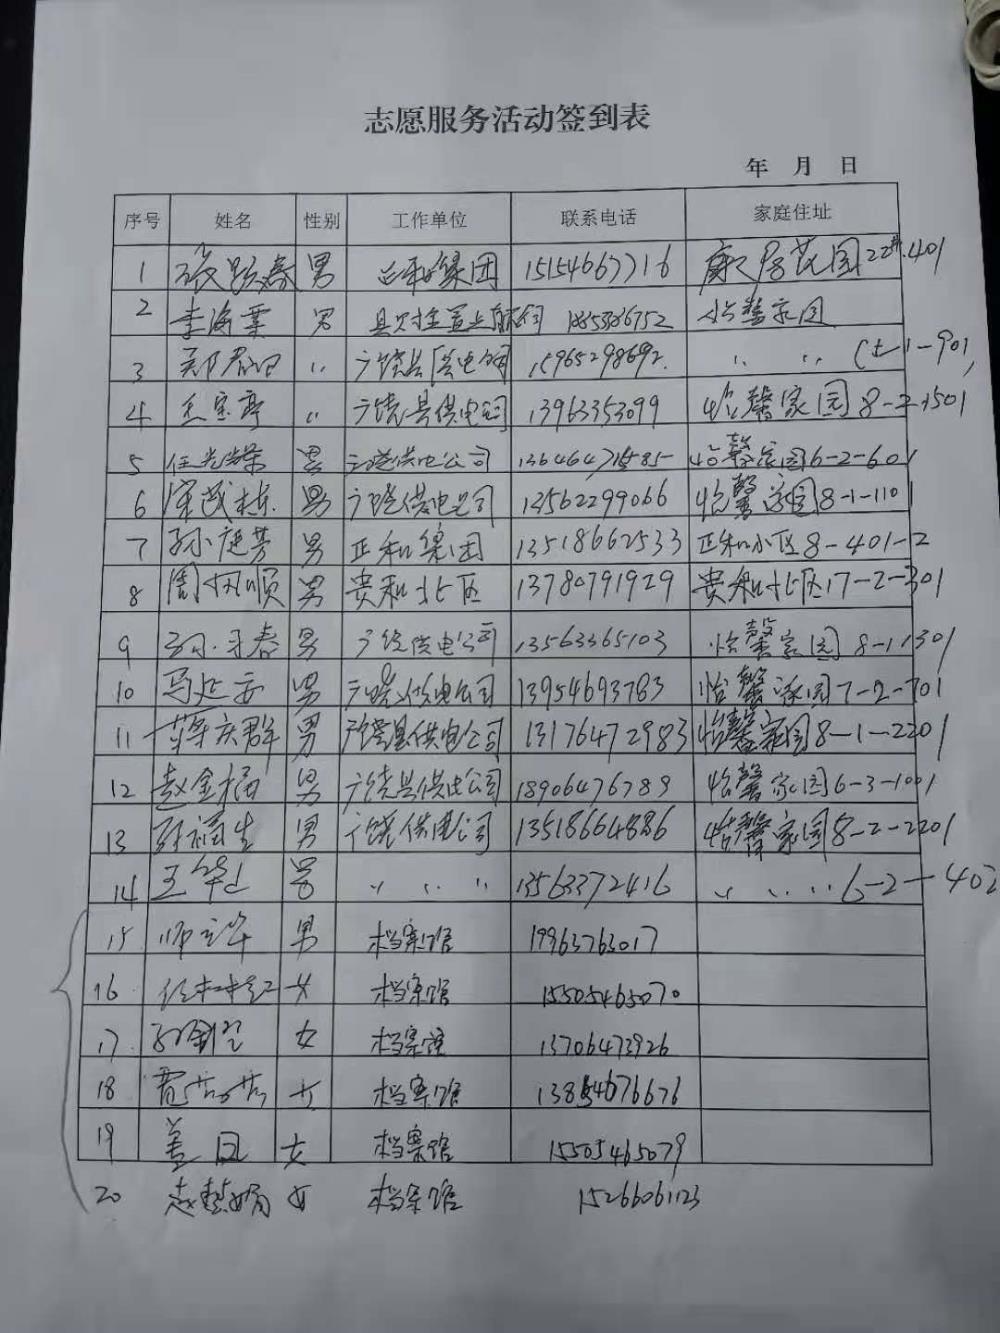 志愿服务活动签到表
年 月 日
序号 姓名 性别 工作单位 联系电话 家庭住址
1 男 正和集团 15154667716 花园 401
2 李海业 男 怡馨家园
3 郑君 〃 广饶县供电公司 15965298692 〃 〃 -1-901
4 王宝 〃 广饶县供电公司 13963353099 怡馨家园8-2-1501
5 任光荣 男 广饶供电公司 怡馨家园6-2-601
6 男 广饶供电公司 13562299066 怡馨家园8-1-1101
7 孙庭芳 男 正和集团 13518662533 正和小区8-401-2
8 周 顺 男 贵和北区 13780791929 贵和北区17-2-301
9 春 男 广饶供电公司 13563365103 怡馨家园8-1-1301
10 马延安 男 广饶县供电公司 13954693783 怡馨家园7-2-701
11 庆群 男 广饶县供电公司 13176472983 怡馨家园8-1-2201
12 赵金福 男 广饶县供电公司 18906476789 怡馨家园6-3-1001
13 孙福生 男 广饶供电公司 13518664886 怡馨家园8-2-2201
14 王华 男 〃 〃 〃 13563372416 〃 〃 〃 6-2-402
15 师 华 男 档案馆 19963763017
16 任 红 女 档案馆 15505465070
17 女 档案馆 13706473926
18 女 档案馆 13854676676
19 盖 女 档案馆 15505465079
20 娟 女 档案馆 15266061123